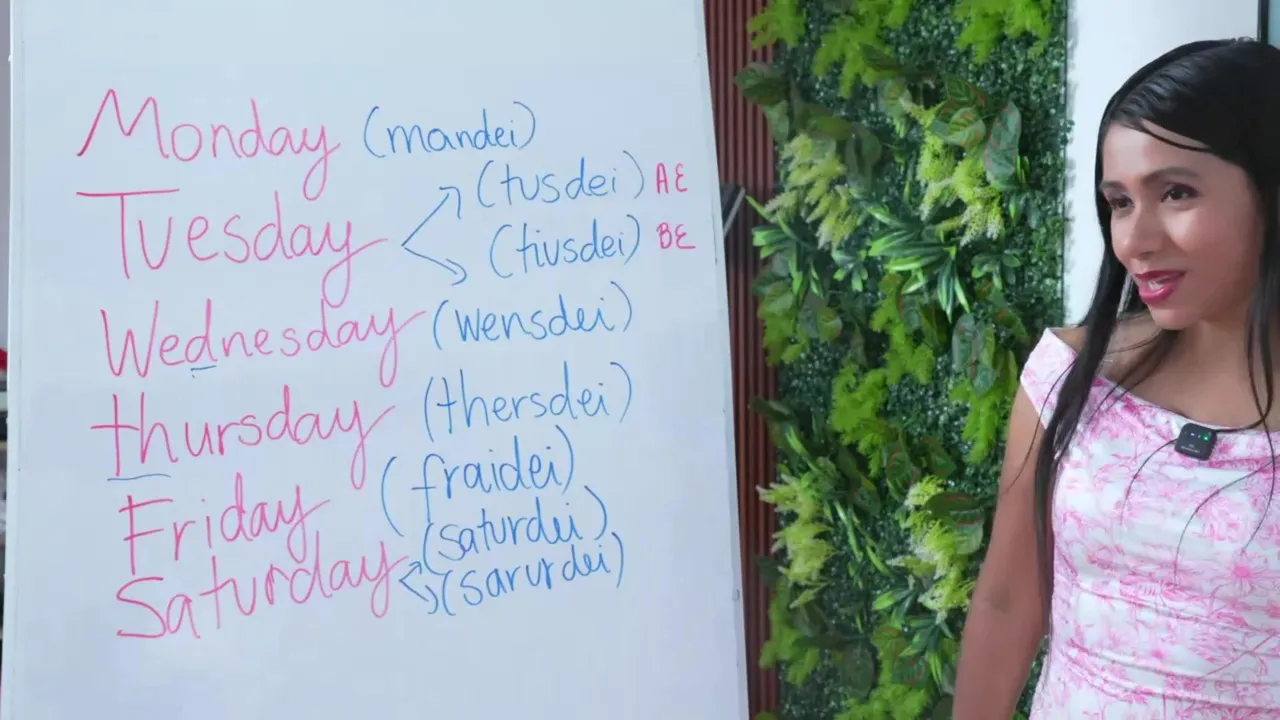 Monday (mandei)
(tusdei) AE
Tuesday
(tiusdei) BE
Wednesday (wensdei)
thursday (thersdei)
Friday (fraidei)
Saturday (saturdei)
(sarurdei)